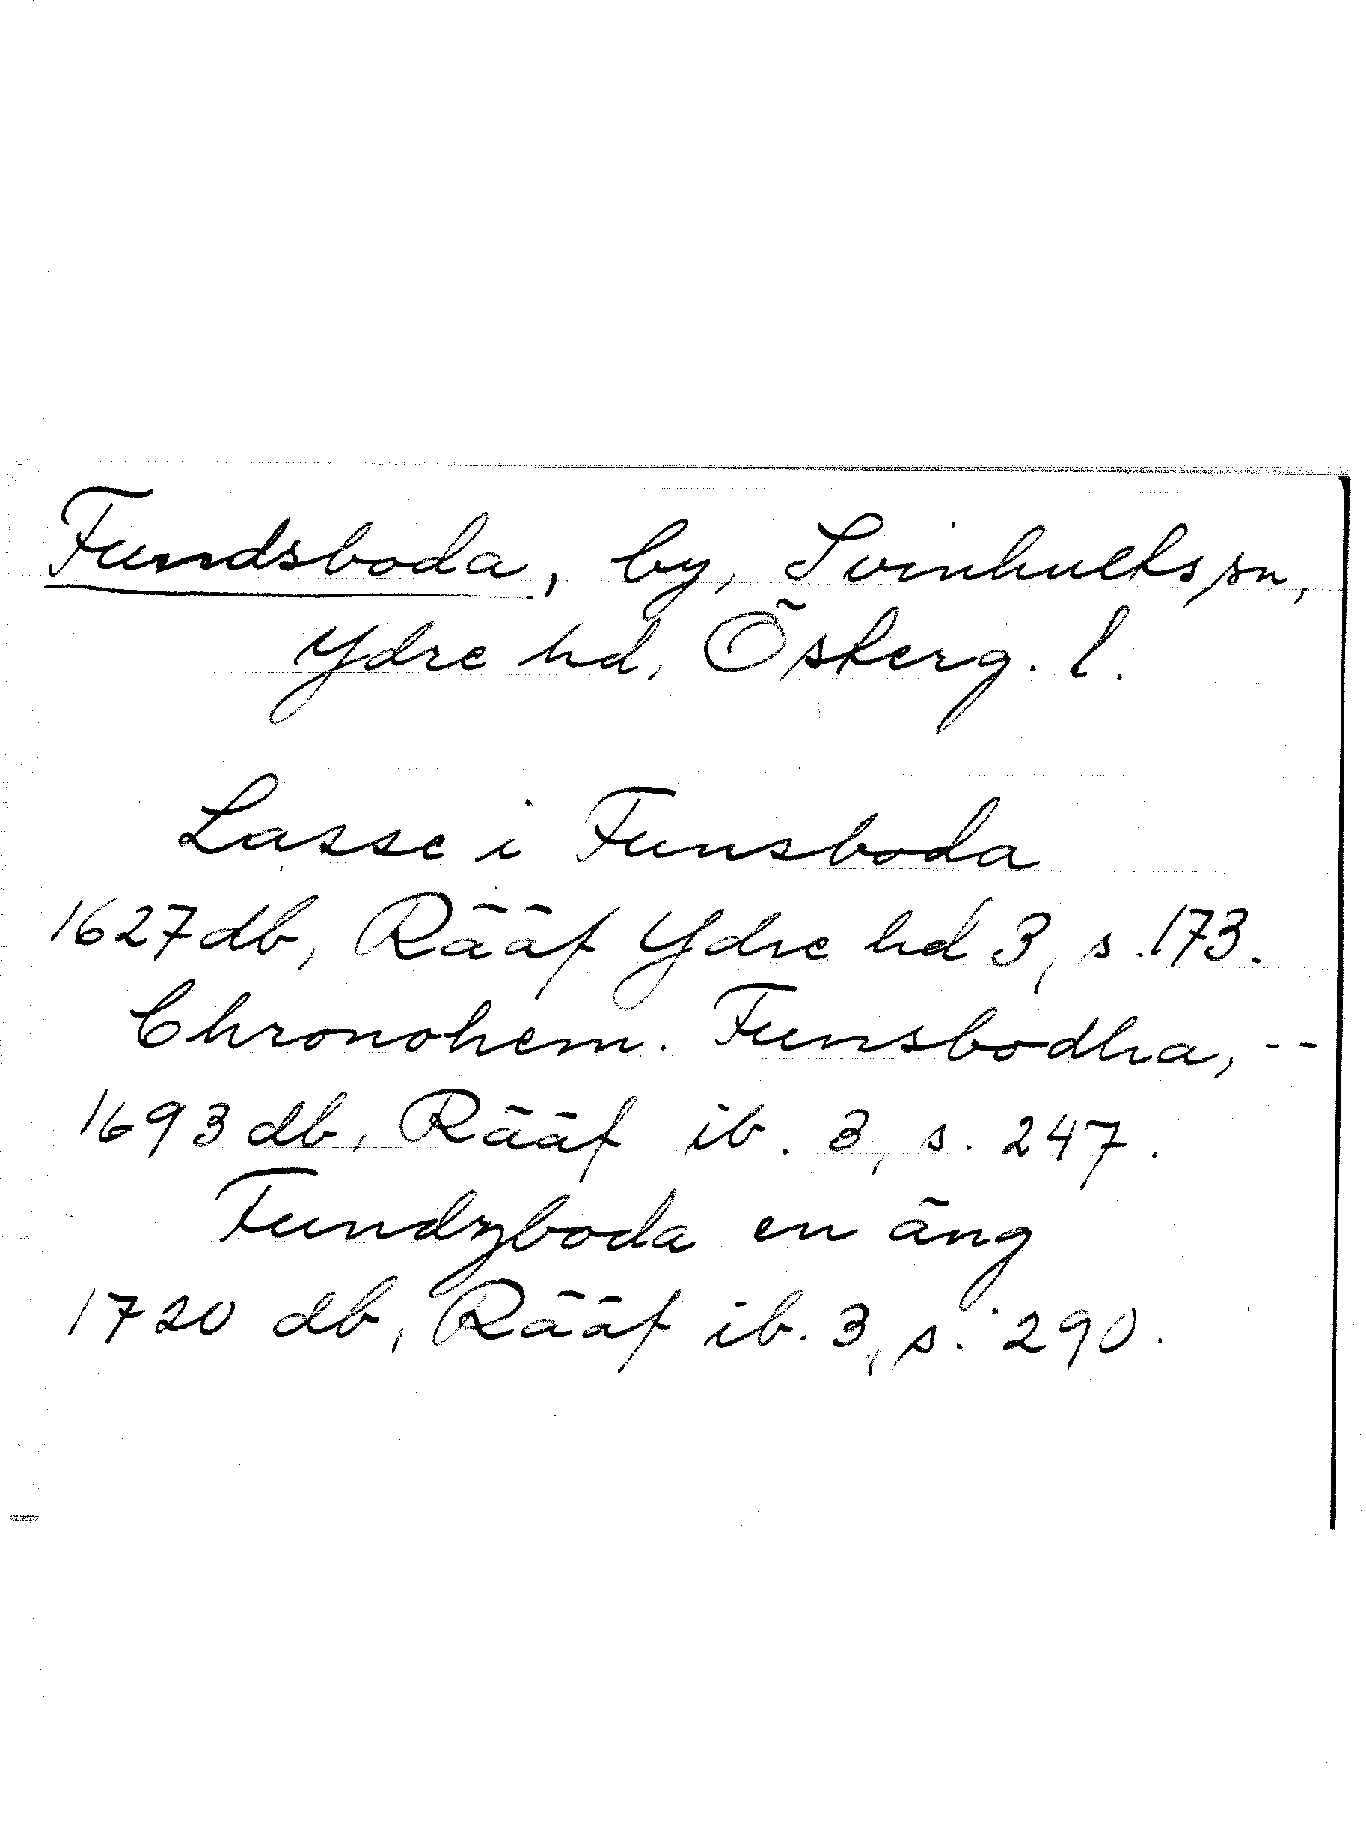 Fundsboda, by, Svinhults sn,
Ydre hd, Österg. l.
Lasse i Funsboda
1627 db, Rääf Ydre hd 3, s. 173.
Chronohem. Funsbodha, --
1693 db, Rääf ib. 3, s. 247.
Fundzboda en äng
1720 db, Rääf ib. 3, s. 290.